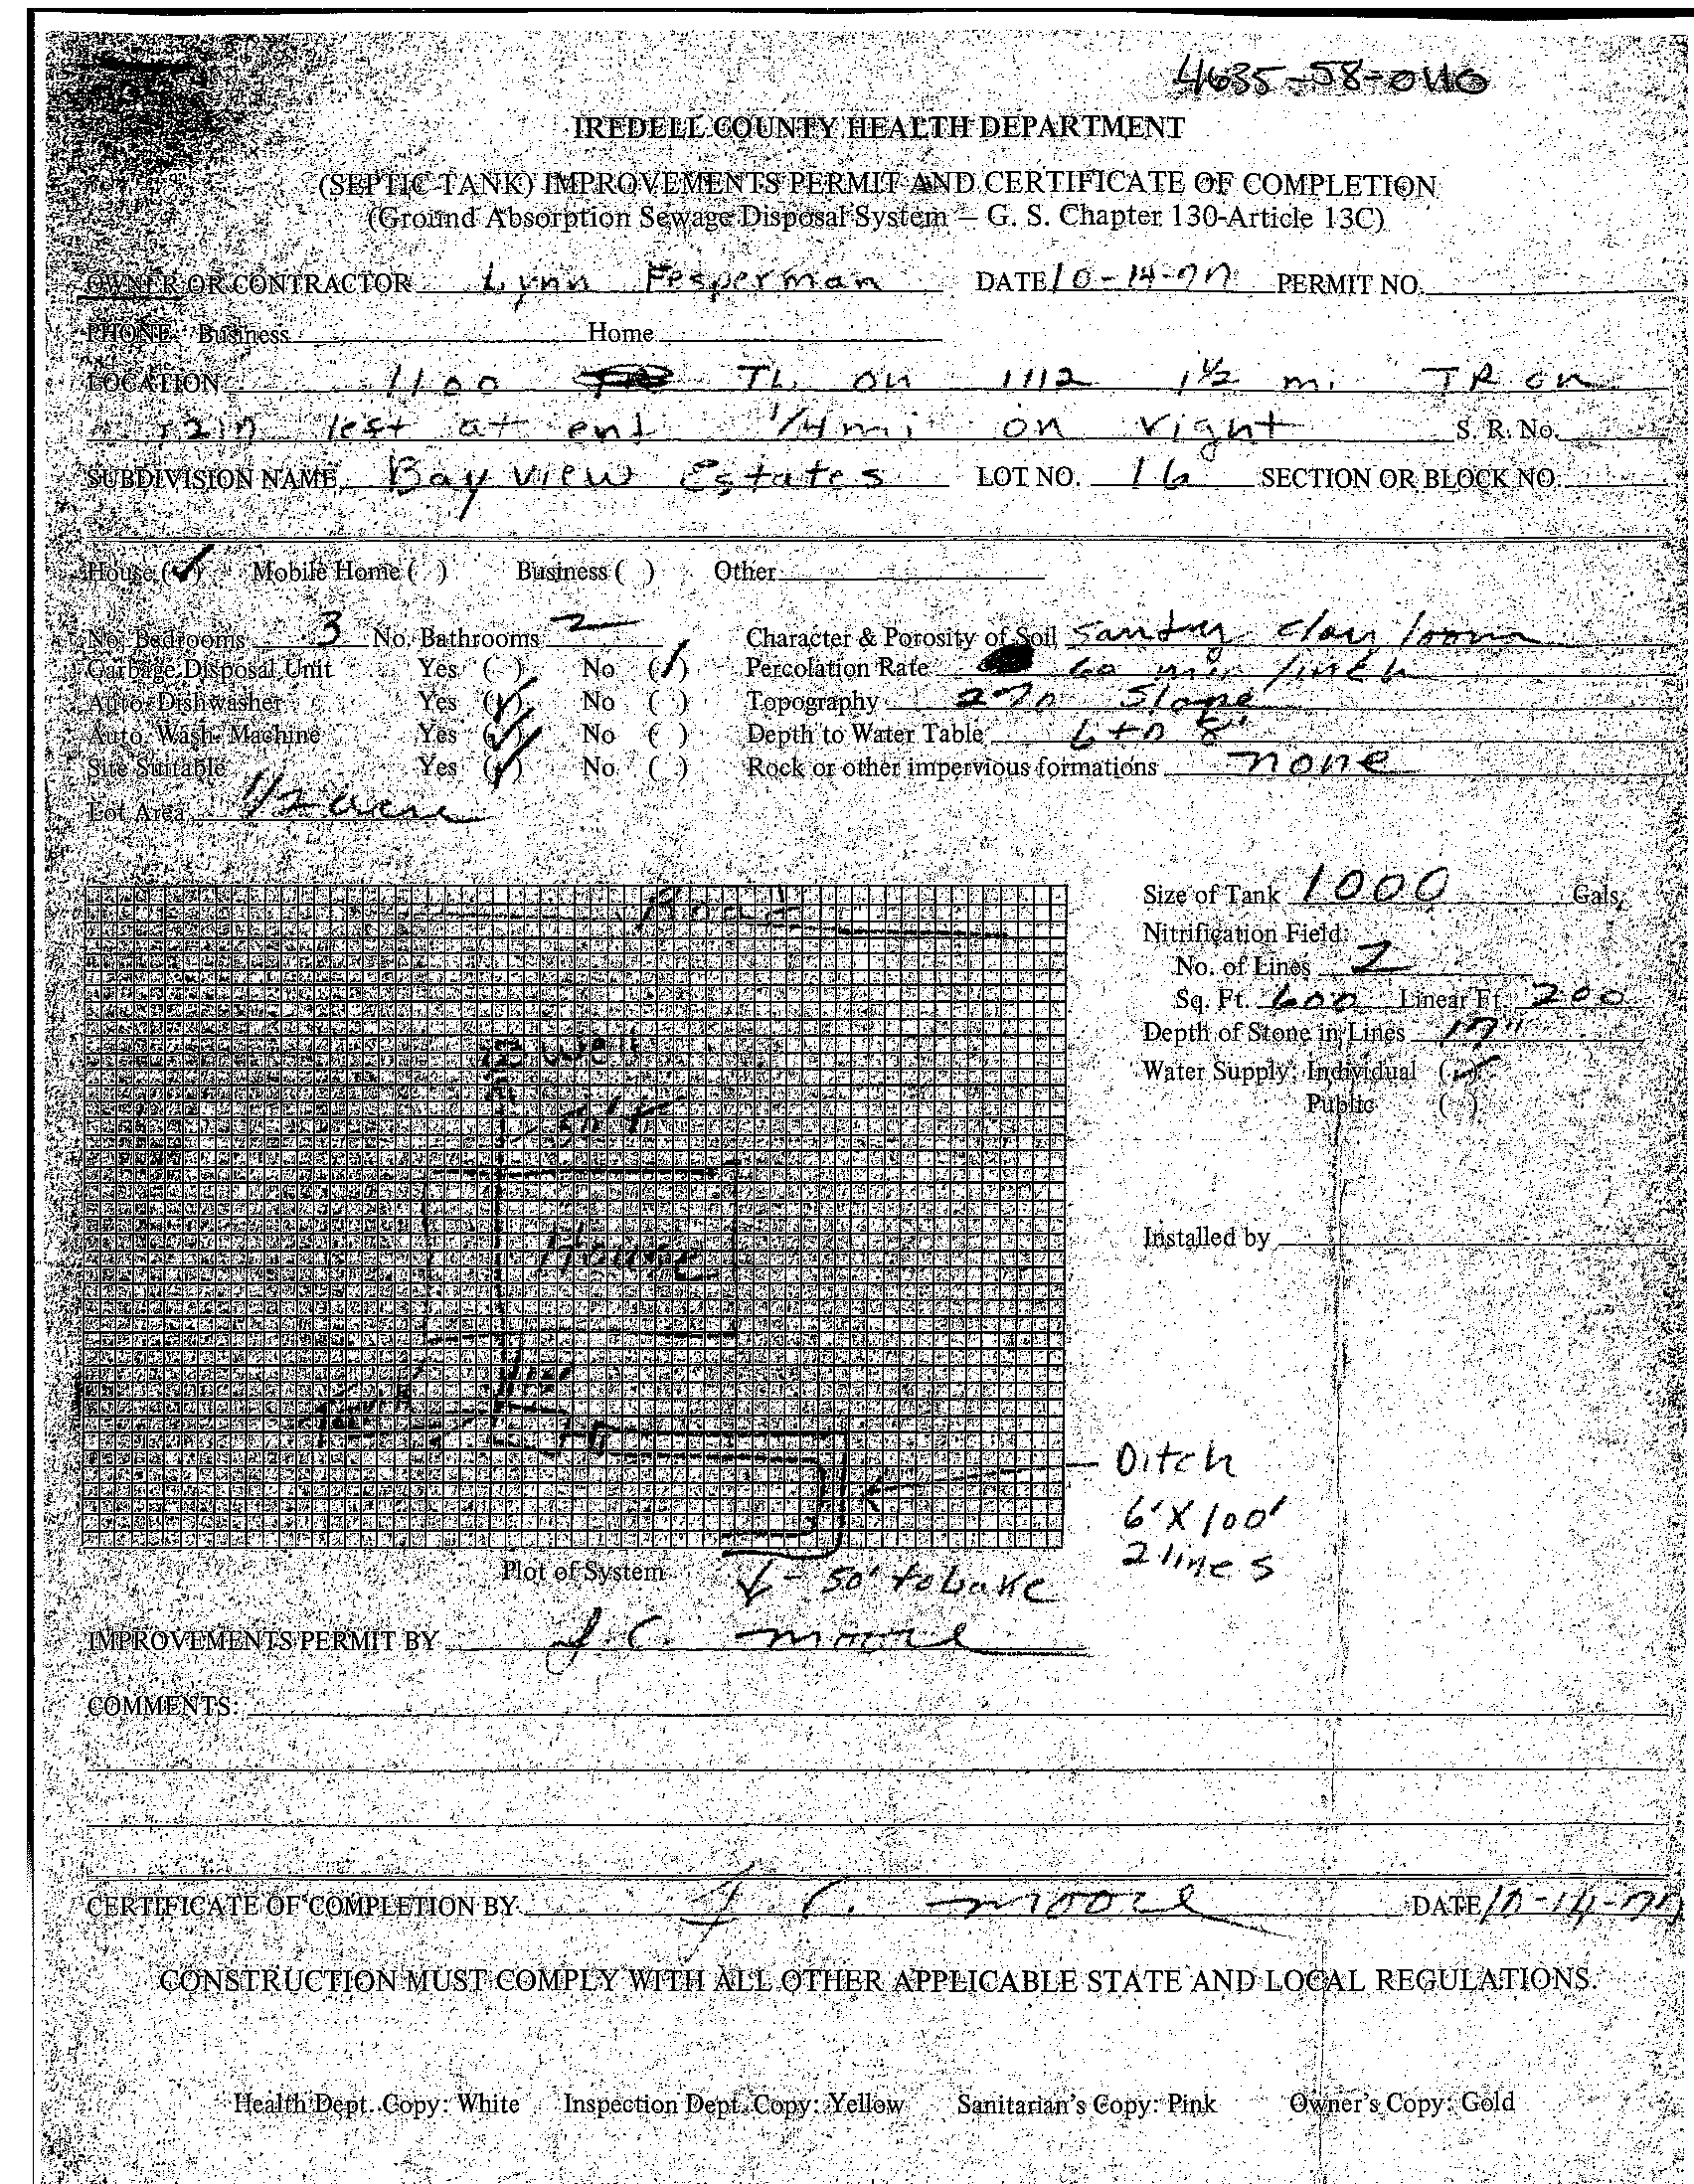 4635-58-0110
IREDELL COUNTY HEALTH DEPARTMENT
(SEPTIC TANK) IMPROVEMENTS PERMIT AND CERTIFICATE OF COMPLETION
(Ground Absorption Sewage Disposal System — G. S. Chapter 130-Article 13C)
OWNER OR CONTRACTOR Lynn Fesperman DATE 10-14-77 PERMIT NO.
PHONE Business Home
LOCATION 1100 TL on 1112 1½ mi TR on
left at end 1/4 mi on right S. R. No.
SUBDIVISION NAME Bay view Estates LOT NO. 16 SECTION OR BLOCK NO.
House (✓) Mobile Home ( ) Business ( ) Other
No. Bedrooms 3 No. Bathrooms 2 Character & Porosity of Soil Sandy clay loam
Garbage Disposal Unit Yes ( ) No (/) Percolation Rate 60 min/inch
Auto. Dishwasher Yes (✓) No ( ) Topography 2% Slope
Auto. Wash. Machine Yes (✓) No ( ) Depth to Water Table 6 to 8'
Site Suitable Yes (✓) No ( ) Rock or other impervious formations none
Lot Area 1/2 acre
Road
Size of Tank 1000 Gals.
Nitrification Field:
No. of Lines 2
Sq. Ft. 600 Linear Ft. 200
Depth of Stone in Lines 17"
well
Water Supply: Individual (✓)
Public ( )
House
Installed by
Ditch
6' X 100'
2 lines
Plot of System
- 50' to lake
IMPROVEMENTS PERMIT BY J. C. Moore
COMMENTS:
CERTIFICATE OF COMPLETION BY J. C. Moore DATE 10-14-77
CONSTRUCTION MUST COMPLY WITH ALL OTHER APPLICABLE STATE AND LOCAL REGULATIONS.
Health Dept. Copy: White Inspection Dept. Copy: Yellow Sanitarian's Copy: Pink Owner's Copy: Gold